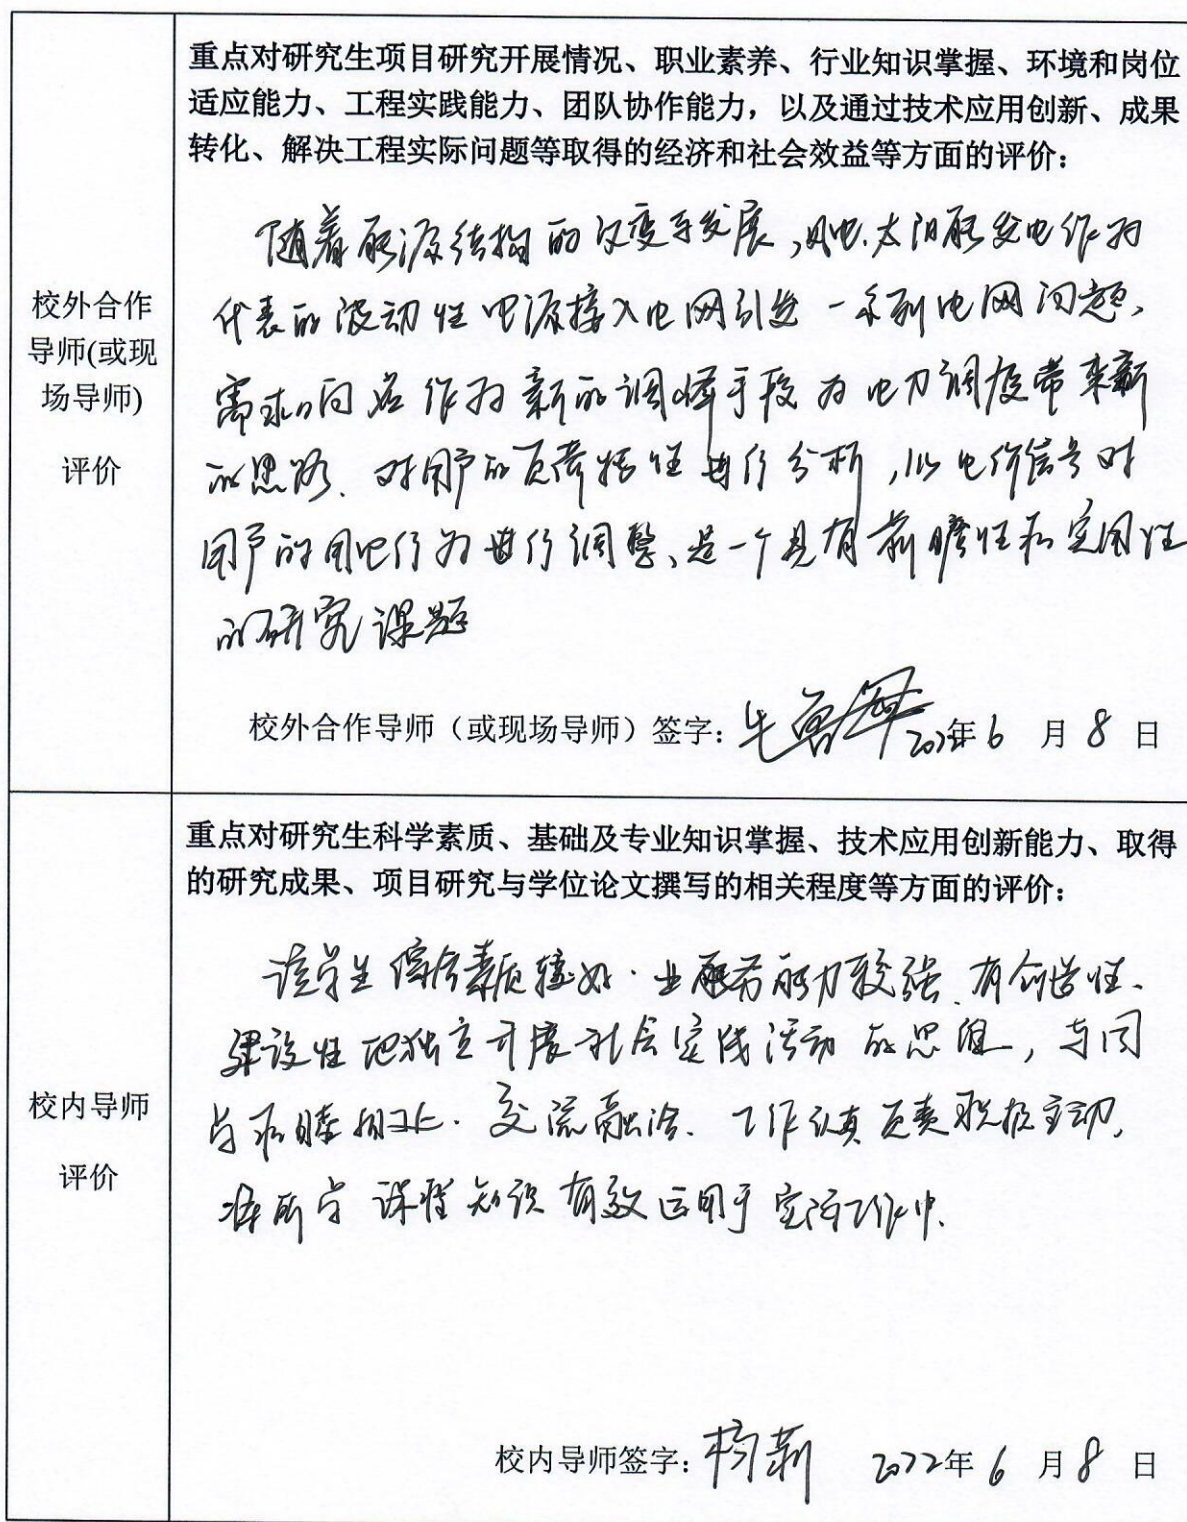 校外合作
导师(或现
场导师)
评价
重点对研究生项目研究开展情况、职业素养、行业知识掌握、环境和岗位
适应能力、工程实践能力、团队协作能力，以及通过技术应用创新、成果
转化、解决工程实际问题等取得的经济和社会效益等方面的评价：
随着能源结构的改变与发展，风电、太阳能发电作为
代表的波动性电源接入电网引发一系列电网问题、
需求响应作为新的调峰手段为电力调度带来新
的思路、对用户的负荷特性进行分析，以电价信号对
用户的用电行为进行调整、是一个具有前瞻性和实用性
的研究课题
校外合作导师（或现场导师）签字：牛 年 6 月 8 日
校内导师
评价
重点对研究生科学素质、基础及专业知识掌握、技术应用创新能力、取得
的研究成果、项目研究与学位论文撰写的相关程度等方面的评价：
该学生综合素质较好．业务能力较强、有创造性、
建设性地独立开展社会实践活动的思维，与同
学和睦相处．交流融洽．工作认真负责积极主动，
将所学课程知识有效运用于实际工作中．
校内导师签字：杨新 2022年 6 月 8 日